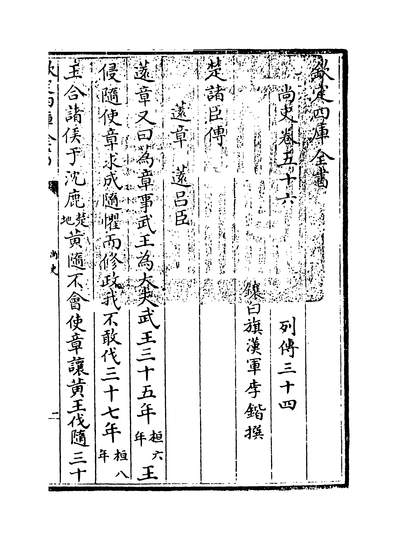 欽定四庫全書
尚史卷五十六　列傳三十四
鑲白旗漢軍李鍇撰
楚諸臣傳
薳章　薳呂臣
薳章又曰為章事武王為大夫武王三十五年桓六年王
侵隨使章求成隨懼而修政我不敢伐三十七年桓八年
王合諸侯于沈鹿楚地黃隨不會使章讓黃王伐隨三十
尚史
二